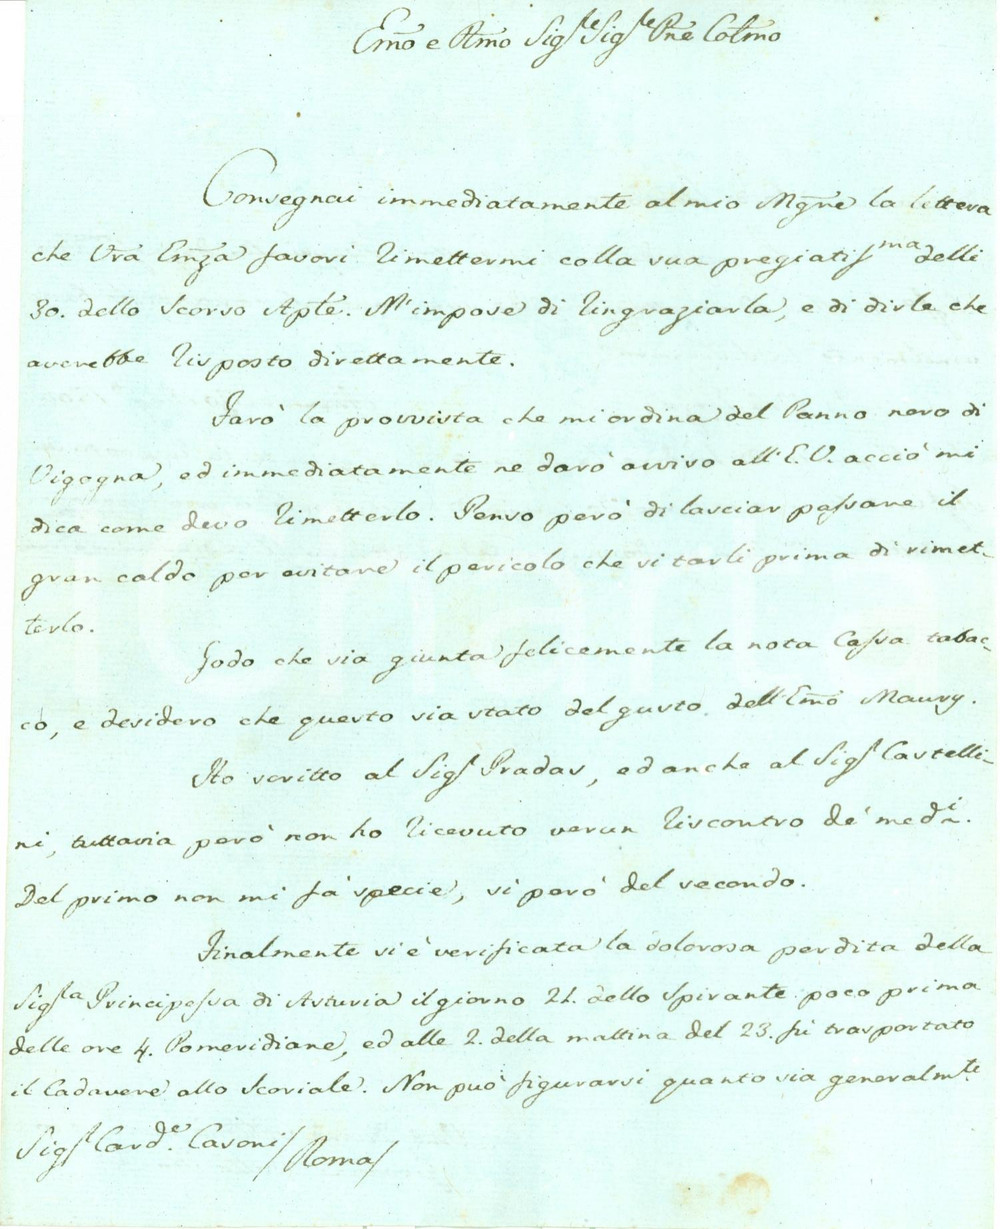 Emo e Rmo Sigre Sigre Pne Colmo
Consegnai immediatamente al mio Mgne la lettera
che Vra Emza favorì rimettermi colla sua pregiatissma delli
30. dello scorso Aple. M'impose di ringraziarla, e di dirle che
averebbe risposto direttamente.
Farò la provvista che mi ordina del Panno nero di
Vigogna, ed immediatamente ne darò avviso all'E.V. acciò mi
dica come devo rimetterlo. Penso però di lasciar passare il
gran caldo per evitare il pericolo che si tarli prima di rimet-
terlo.
Godo che sia giunta felicemente la nota Cassa tabac-
co, e desidero che questo sia stato del gusto dell'Emo Maury.
Ho scritto al Sigr Pradas, ed anche al Sigr Castelli-
ni, tuttavia però non ho ricevuto verun riscontro de' medi.
Del primo non mi fà specie, si però del secondo.
Finalmente si è verificata la dolorosa perdita della
Sigra Principessa di Asturia il giorno 21. dello spirante poco prima
delle ore 4. Pomeridiane, ed alle 2. della mattina del 23. fù trasportato
il Cadavere allo Scoriale. Non può figurarsi quanto sia generalmte
Sigr Carde. Casoni / Roma /